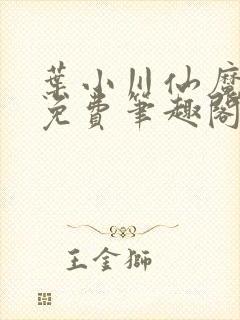 葉小川仙魔
免費筆趣閣
王金獅